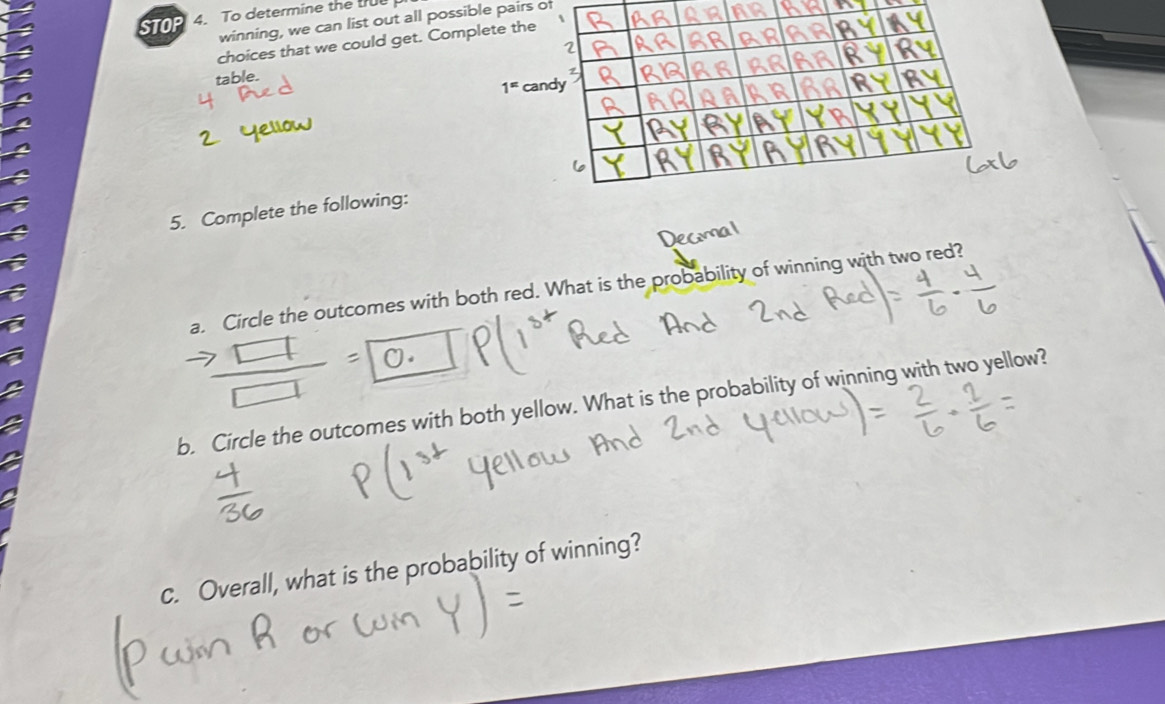 STOP 4. To determine the true
winning, we can list out all possible pairs of
choices that we could get. Complete the
table.
4 Red
2 yellow
1st candy
1 R RR RR RR RR RY RY
2 R RR RR RR RR RY RY
3 R RR RR RR RR RY RY
R RR RR RR RR RY RY
Y RY RY RY YR YY YY
6 Y RY RY RY RY YY YY
6x6
5. Complete the following:
Decimal
a. Circle the outcomes with both red. What is the probability of winning with two red?
→ = 0. P(1st Red And 2nd Red) = 4/6 · 4/6
b. Circle the outcomes with both yellow. What is the probability of winning with two yellow?
4/36 P(1st yellow And 2nd yellow) = 2/6 · 2/6 =
c. Overall, what is the probability of winning?
(P win R or win Y) =